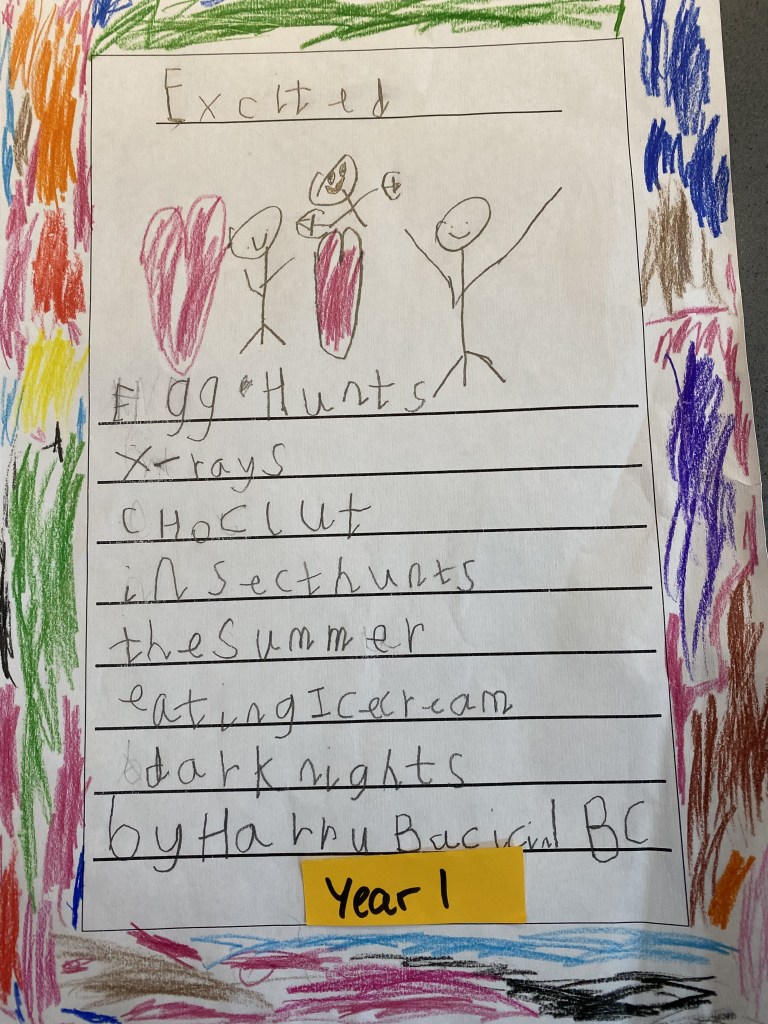 Excited
Egg Hunts
X-rays
CHOCLUt
insecthunts
thesummer
eatingIcecream
dark nights
by Harry BC
Year 1